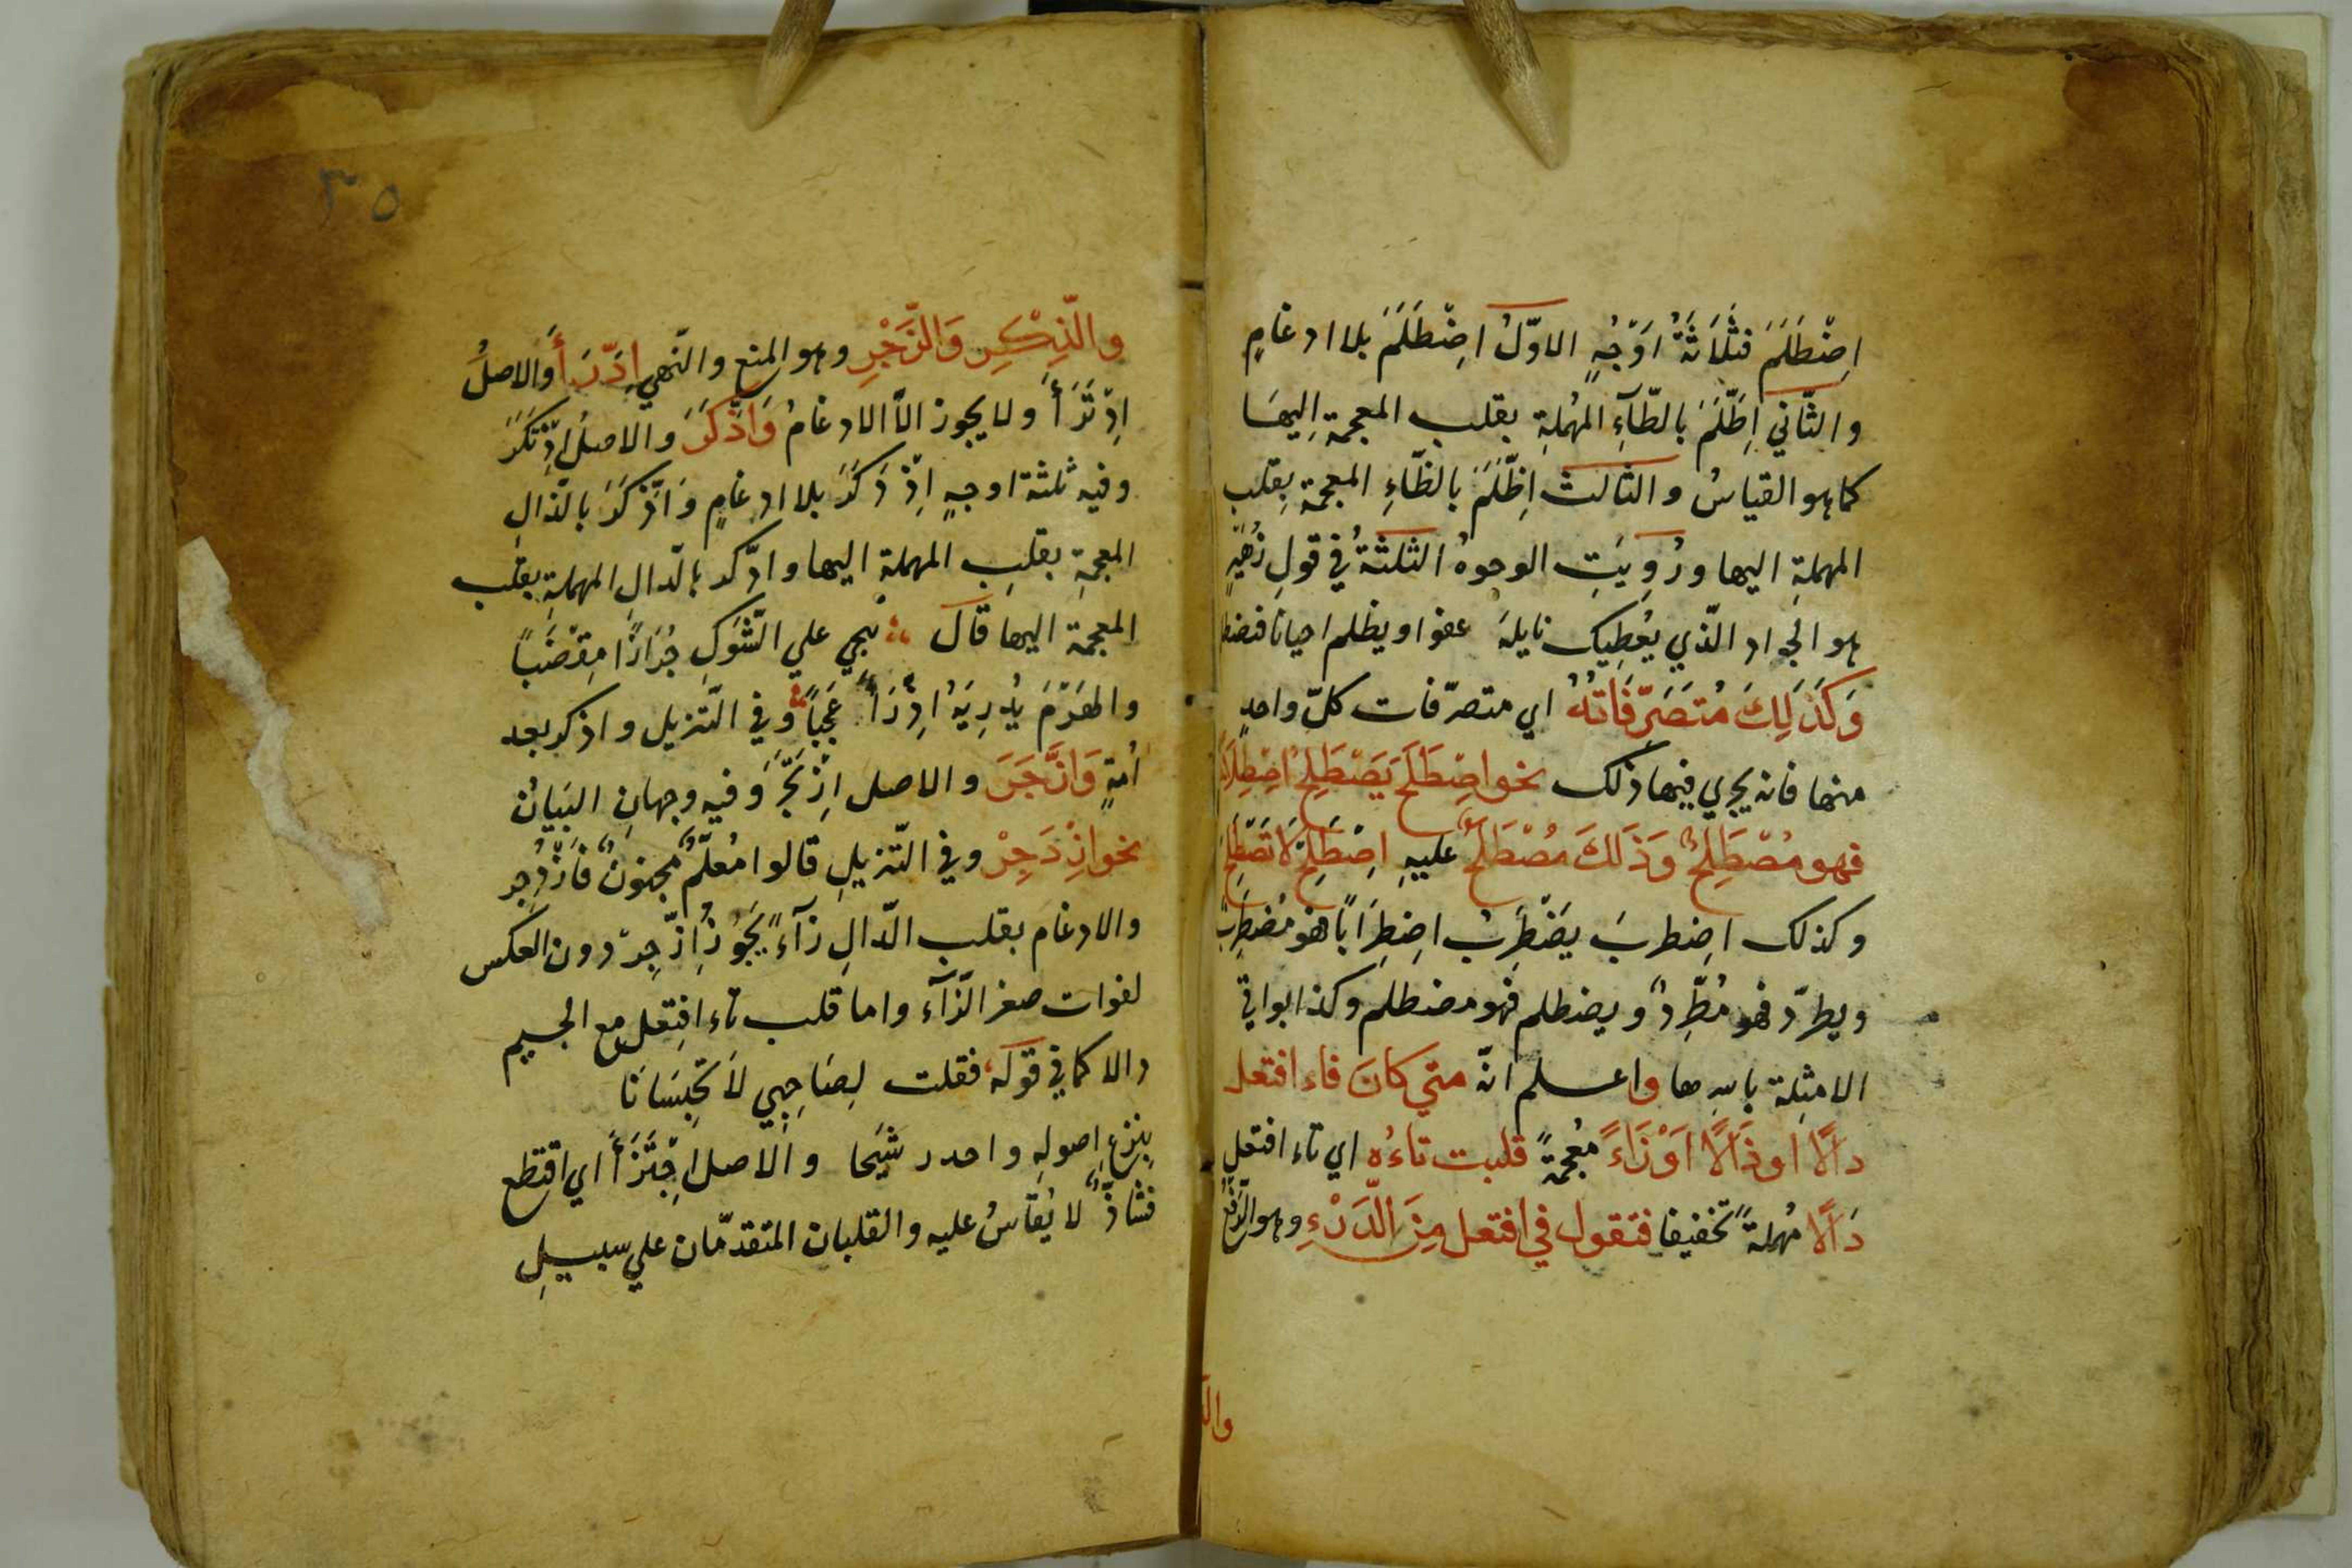 اضْطَلَمَ فثَلَاثَةُ اَوْجُهٍ الاوّلُ اضْطَلَمَ بلا ادغامٍ
والثّاني اِطَّلَمَ بالطّآءِ المهُملةِ بقلب المعجمة اِليهَا
كما هو القياسُ والثالث اِظَّلَمَ بالظّاءِ المعجمة بِقلب
المهملةِ اليها ورُوِيَتِ الوجوهُ الثلثةُ في قولِ زُهَيْرٍ
هو الجواد الّذي يُعطِيك نايلهُ عفوا ويظلم احيانا فيضط
وَكَذَلِكَ مُتَصَرِّفَاتُهُ اي متصرّفات كلّ واحدٍ
منها فانه يجري فيها ذلك نحو اصْطَلَحَ يَصْطَلِحُ اصْطِلَا
فهو مُصْطَلِحٌ وَذَلكَ مُصْطَلَحٌ عليهِ اِصْطَلِحْ لَا تَصْطَلِحْ
وكذلك اضطربَ يَضْطَرِبُ اضِطِرَابًا فهو مُضطَرِبٌ
ويطرّد فهو مُطَّرِدٌ ويضطلم فهو مضطلم وكذا بواقي
الامثِلة باسرِها واعلم انّه متي كان فاء افتعل
دالًا اوذَالًا اَوْزَاءً مُعجمةً قلبت تاءُه اي تاء افتعل
دَالًا مُهملةً تخفيفا فتقول في افتعل مِنَ الدَّرْءِ وهو الدّفع
والذ
٣٥
والذِّكْرِ وَالزَّجْرِ وهو المنع والنّهي اِدَّرَأَ والاصلُ
اِدْتَرَأَ ولا يجوز الاّ الادغامُ وَاذَّكَرَ والاصلُ اِذْتَكَرَ
وفيه ثلثة اوجهٍ اِذْدَكَرَ بلا ادغامٍ وَاذَّكَرَ بالذّالِ
المعجمةِ بقلبِ المهملةِ اليها وادّكر بالدّالِ المهملةِ بقلب
المعجمة اليها قال تنحي علي الشّوَكِ جُرَازًا مِقْضَبًا
والهَرْمَ يُدرِيَهُ اذْدَرَأً عَجَبًا وفي التّنزيل واذكر بعد
اُمةٍ وَازَّجَرَ والاصل ازْتَجَرَ وفيه وجهانِ البَيَانُ
نحو ازْدَجِرْ وفي التّنزيلِ قالوا مُعلّمٌ مجنونٌ فَازْدُجِر
والادغام بقلب الدّالِ زآءً يَجُوزُ اِزَّجِرّ دون العكس
لفوات صفير الزّآء واما قلب تاء افتِعل مع الجيم
دالا كما في قوله فقلت لِصَاحِبِي لاَ تَحْبِسَانَا
بنزعِ اصولهِ واحدر شيحا والاصل اِجْتَزَأَ اي اقتطع
فشاذٌّ لا يُقاسُ عليه والقلبان المتقدّمان علي سبيلِ